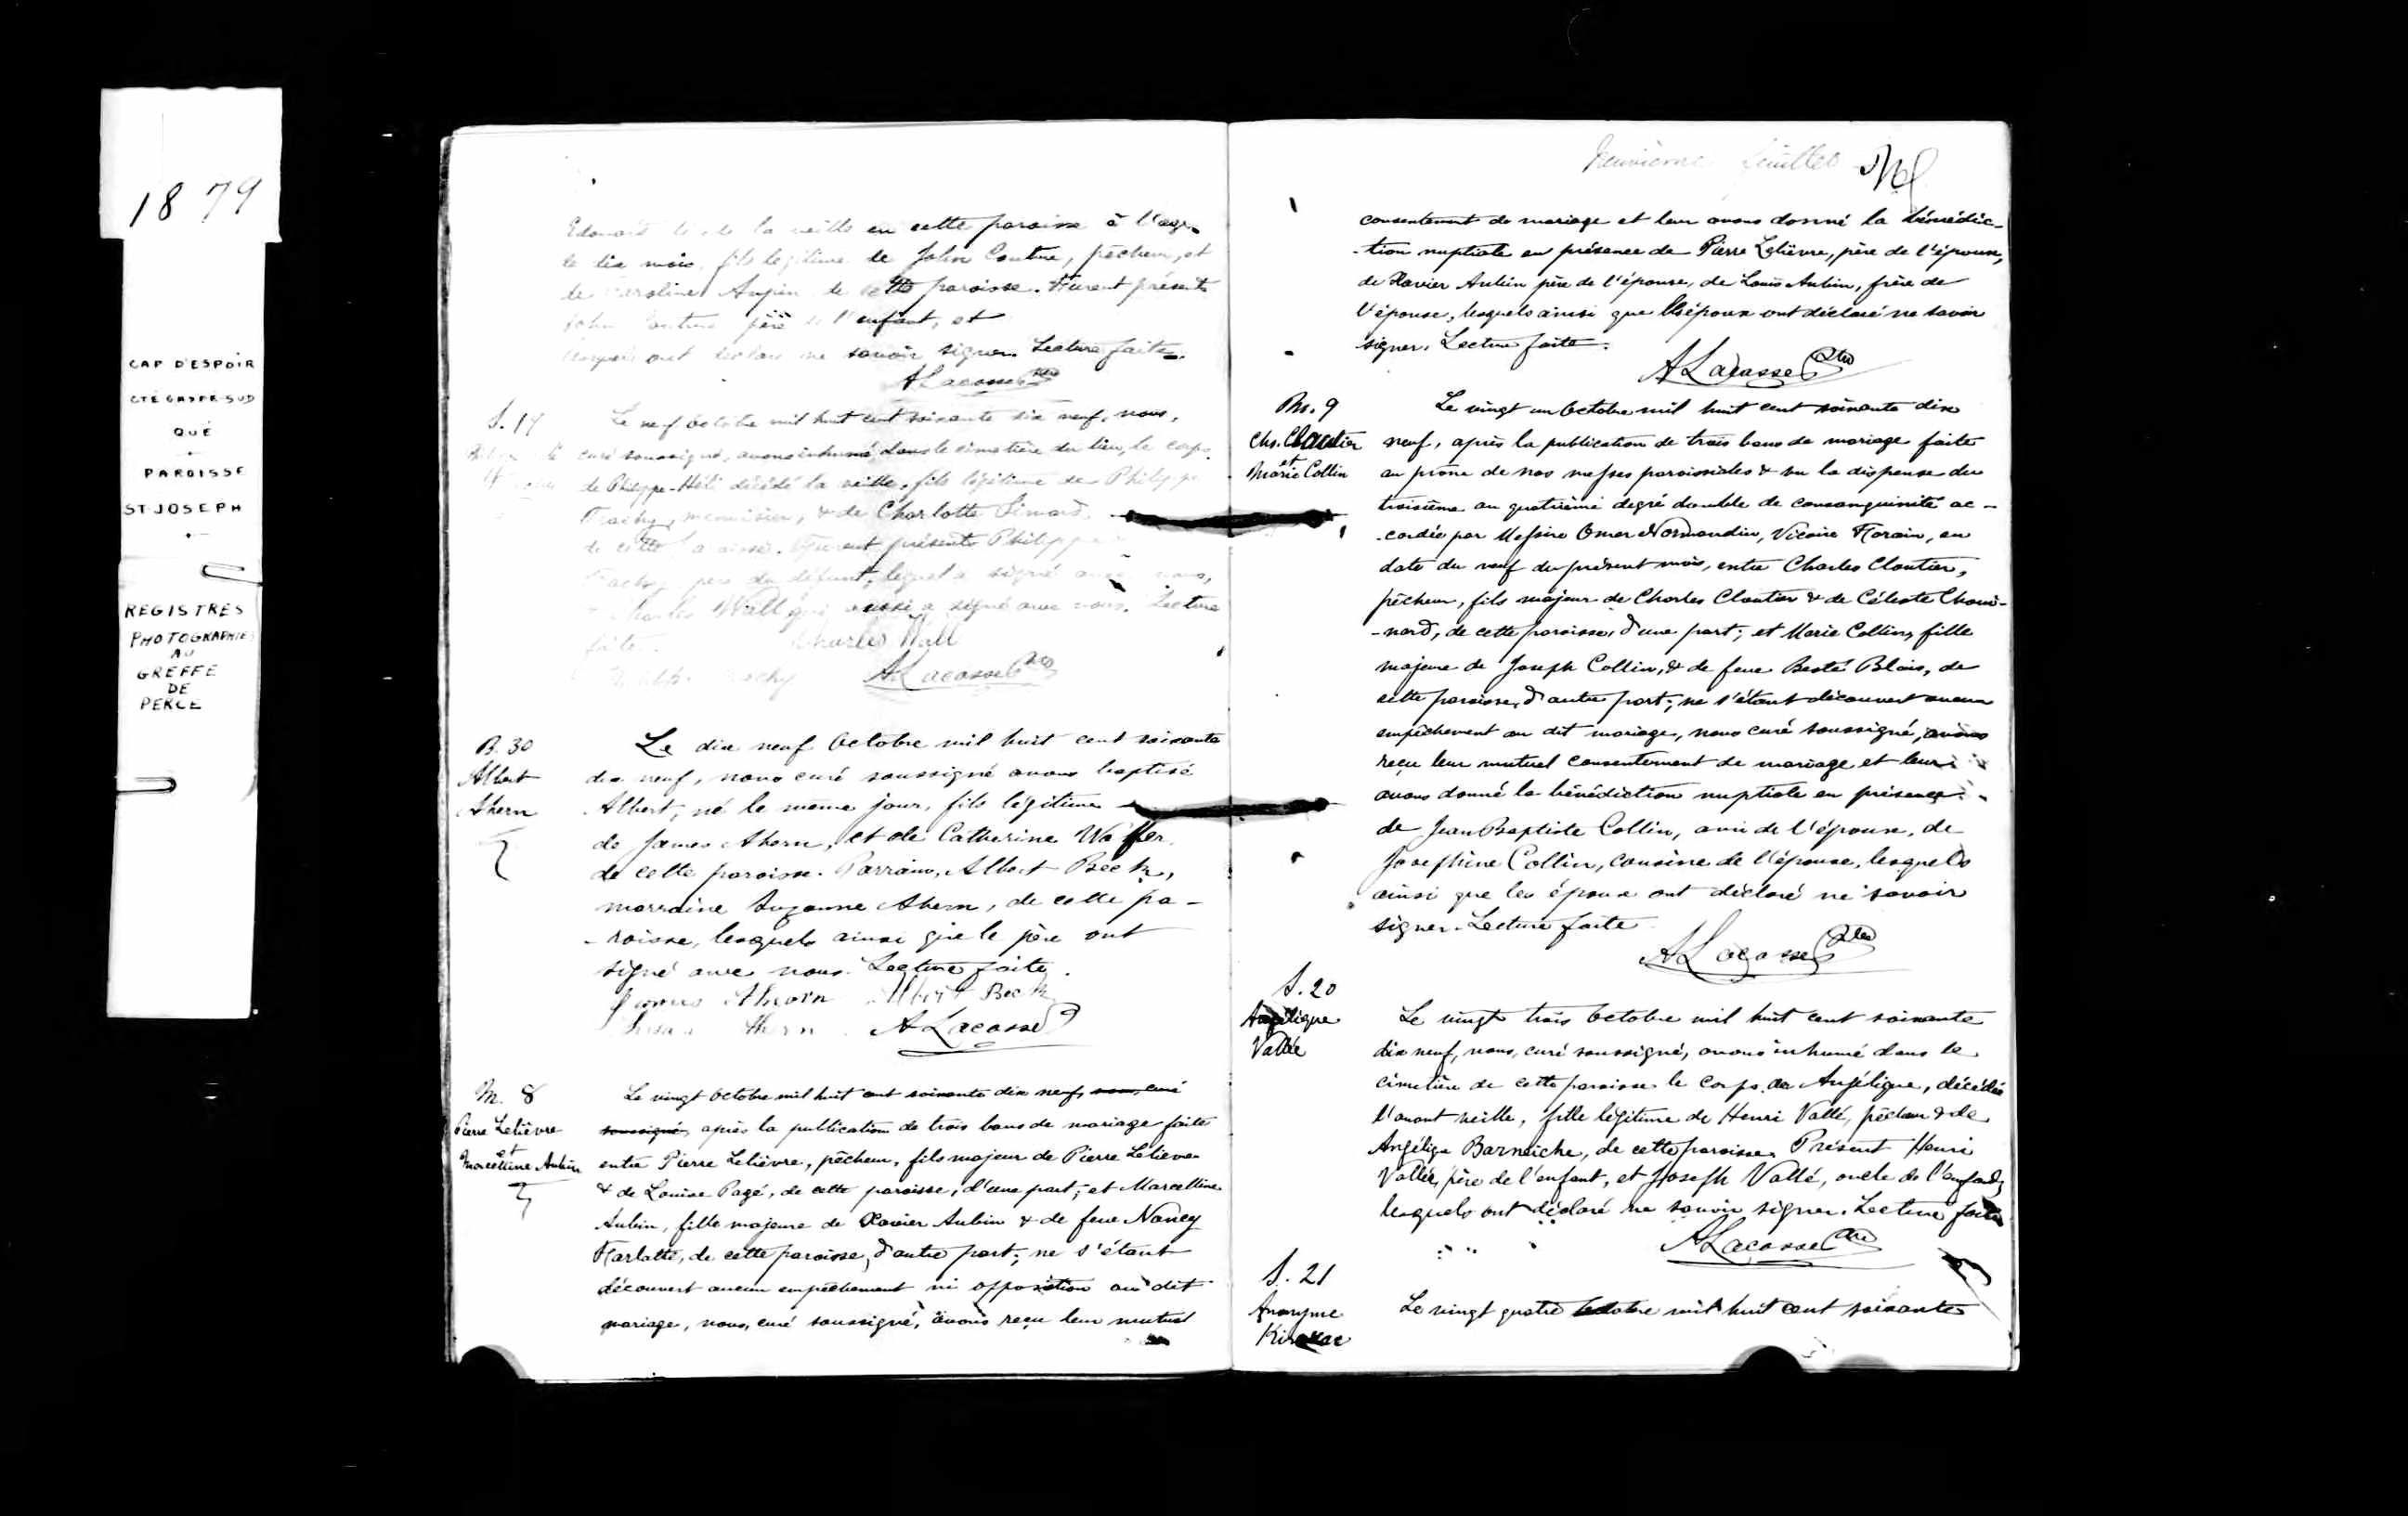 1879
CAP D'ESPOIR
CTÉ GASPE-SUD
QUÉ
PAROISSE
ST-JOSEPH
REGISTRES
PHOTOGRAPHIES
AU
GREFFE
DE
PERCE
de la veille en cette paroisse à l'age
de dix mois, fils légitime de John Couture, pêcheur, et
de Caroline de cette paroisse. Furent présents
John Couture père de l'enfant, et
lesquels ont déclaré ne savoir signer. Lecture faite.
ALacasse Ptre
S. 19
Le neuf Octobre mil huit cent soixante dix neuf, nous,
curé soussigné, avons inhumé dans le cimetière du lieu, le corps
de Philippe-Héli décédé la veille, fils légitime de Philippe
Trachy, menuisier, & de Charlotte Simard
de cette paroisse. Furent présents Philippe
Trachy père du défunt, lequel a signé avec nous,
Charles Wall qui aussi a signé avec nous. Lecture
faite. Charles Wall
ALacasse Ptre
B. 30
Albert
Ahern
Le dix neuf Octobre mil huit cent soixante
dix neuf, nous curé soussigné avons baptisé
Albert, né le même jour, fils légitime
de James Ahern, et de Catherine
de cette paroisse. Parrain, Albert Beck,
marraine Suzanne Ahern, de cette pa-
-roisse, lesquels ainsi que le père ont
signé avec nous. Lecture faite.
James Ahern Albert Beck
Ahern ALacasse
M. 8
Pierre Lelièvre
et
Marcelline Aubin
Le vingt Octobre mil huit cent soixante dix neuf, nous, curé
soussigné, après la publication de trois bans de mariage faite
entre Pierre Lelièvre, pêcheur, fils majeur de Pierre Lelievre
& de Louise Pagé, de cette paroisse, d'une part; et Marcelline
Aubin, fille majeure de Xavier Aubin & de feue Nancy
de cette paroisse, d'autre part; ne s'étant
découvert aucun empêchement ni opposition au dit
mariage, nous, curé soussigné, avons reçu leur mutuel
Neuvième feuillet
consentement de mariage et leur avons donné la bénédic-
-tion nuptiale en présence de Pierre Lelièvre, père de l'époux,
de Xavier Aubin père de l'épouse, de Louis Aubin, frère de
l'épouse, lesquels ainsi que les époux ont déclaré ne savoir
signer. Lecture faite.
ALacasse Ptre
M. 9
Chs. Cloutier
et
Marie Collin
Le vingt un Octobre mil huit cent soixante dix
neuf, après la publication de trois bans de mariage faite
au prône de nos messes paroissiales & vu la dispense du
troisième au quatrième degré double de consanguinité ac-
-cordée par Messire Omer Normandin, Vicaire Forain, en
date du neuf du présent mois, entre Charles Cloutier,
pêcheur, fils majeur de Charles Cloutier & de Céleste Choui-
-nard, de cette paroisse, d'une part; et Marie Collin, fille
majeure de Joseph Collin, & de feue Blais, de
cette paroisse, d'autre part; ne s'étant découvert aucun
empêchement au dit mariage, nous curé soussigné, avons
reçu leur mutuel consentement de mariage et leur
avons donné la bénédiction nuptiale en présence
de Jean Baptiste Collin, ami de l'époux, de
Josephine Collin, cousine de l'épouse, lesquels
ainsi que les époux ont déclaré ne savoir
signer. Lecture faite
ALacasse Ptre
S. 20
Angélique
Vallée
Le vingt trois Octobre mil huit cent soixante
dix neuf, nous, curé soussigné, avons inhumé dans le
cimetière de cette paroisse le corps de Angélique, décédée
l'avant veille, fille légitime de Henri Vallé, pêcheur & de
Angéliqe Barneiche, de cette paroisse. Présent Henri
Vallée, père de l'enfant, et Joseph Vallé, oncle de l'enfant,
lesquels ont déclaré ne savoir signer. Lecture faite
ALacasse Ptre
S. 21
Anonyme
Le vingt quatre Octobre mil huit cent soixante